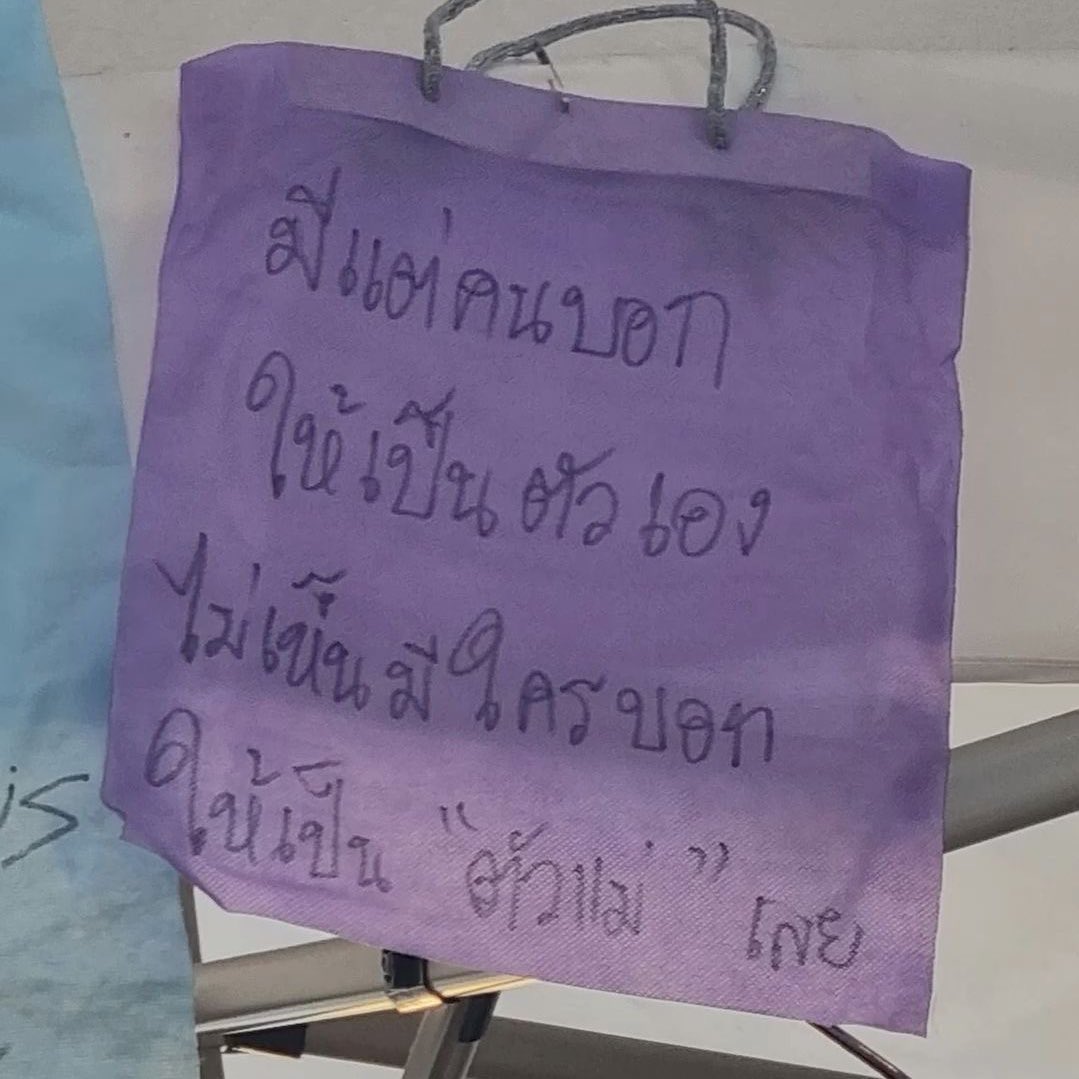 มีแต่คนบอก
ให้เป็นตัวเอง
ไม่เห็นมีใครบอก
ให้เป็น “ตัวแม่” เลย
is